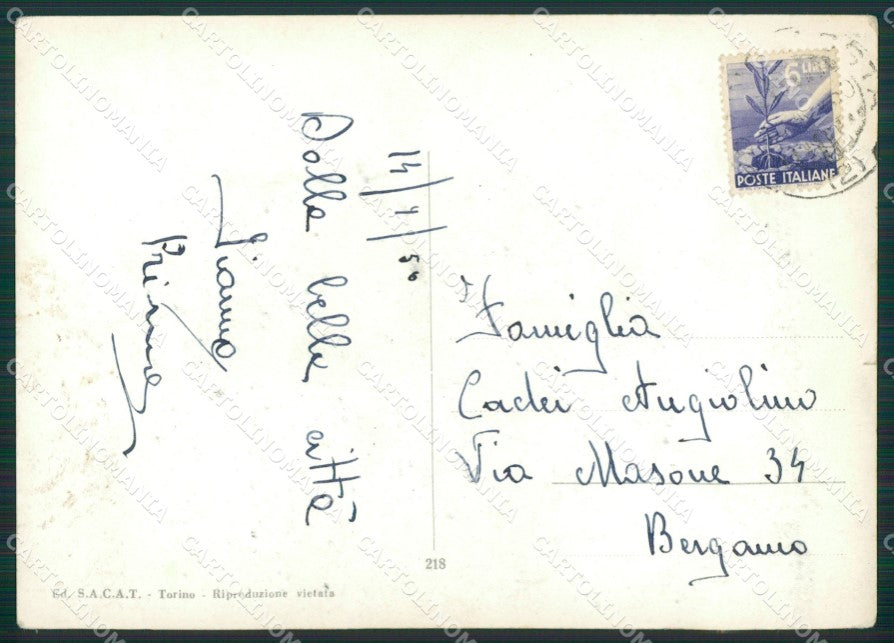 14/4/50
Dalla bella città
Gianno
6 LIRE
POSTE ITALIANE
Famiglia
Cadei Angiolino
Via Masone 34
Bergamo
218
Ed. S.A.C.A.T. - Torino - Riproduzione vietata
CARTOLINOMANIA